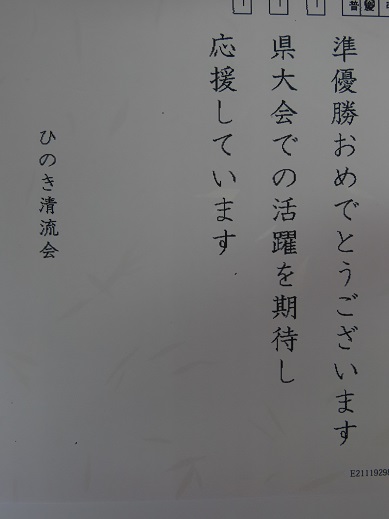 準優勝おめでとうございます
県大会での活躍を期待し
応援しています
ひのき清流会